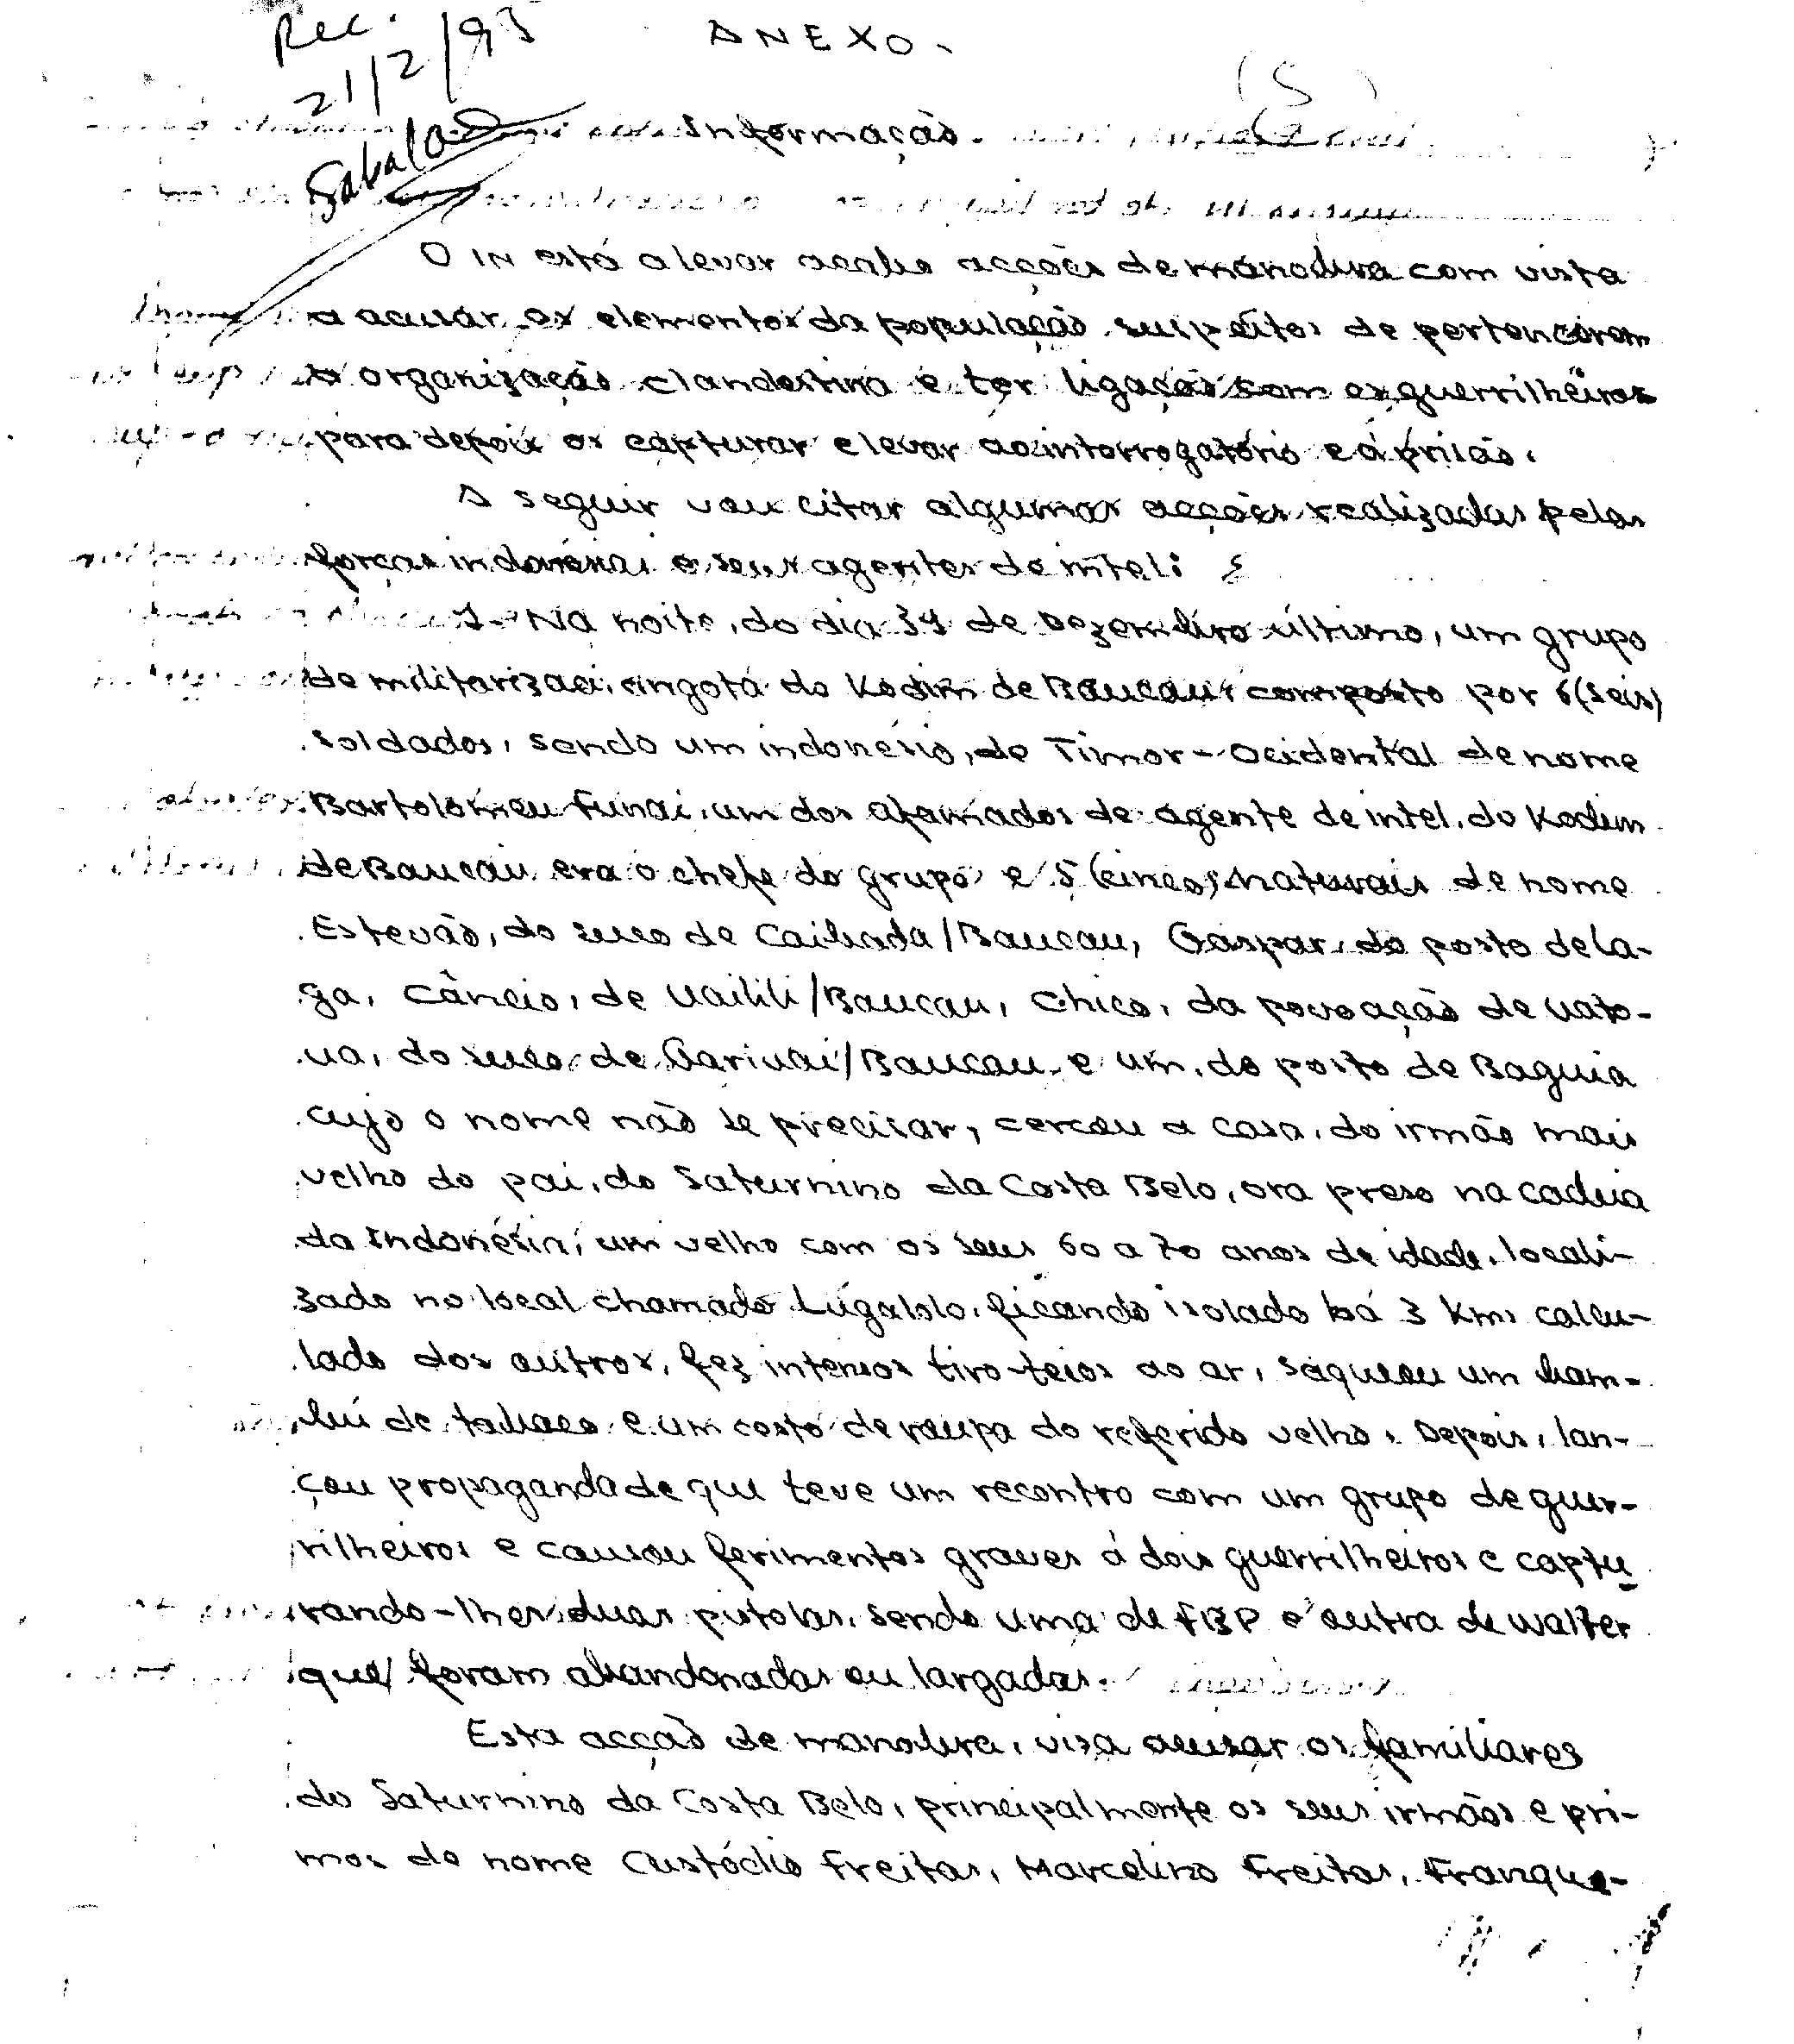 Rec.
21/2/93
ANEXO.
(5)
Sabalae
Informação.
O IN está a levar acabo acções de manobra com vista
a acusar os elementos da população suspeitos de pertencerem
a organização clandestina e ter ligação com os guerrilheiros
para depois os capturar e levar ao interrogatório e à prisão.
A seguir vou citar algumas acções realizadas pelas
forças indonésias e seus agentes de inteli
1- Na noite, do dia 31 de Dezembro último, um grupo
de do Kodim de Baucau composto por 6 (seis)
soldados, sendo um indonésio, de Timor-Ocidental de nome
Bartolomeu Funai, um dos afamados de agente de intel. do Kodim
de Baucau era o chefe do grupo e 5 (cinco) naturais de nome
Estevão, do suco de Caibada/Baucau, Gaspar, do posto de La-
ga, Câncio, de Uailili/Baucau, Chico, da povoação de Uato-
ua, do suco de Gariuai/Baucau e um, do posto de Baguia
cujo o nome não se precisar, cercou a casa, do irmão mais
velho do pai, do Saturnino da Costa Belo, ora preso na cadeia
da Indonésia, um velho com os seus 60 a 70 anos de idade, locali-
zado no local chamado Lugalolo, ficando isolado há 3 Kms calcu-
lado dos outros, fez intensos tiro-teios ao ar, saqueou um bam-
bú de tabaco e um costó de roupa do referido velho. Depois, lan-
çou propaganda de que teve um recontro com um grupo de guer-
rilheiros e causou ferimentos graves à dois guerrilheiros e captu
rando-lhes duas pistolas, sendo uma de FBP e outra de Walter
que foram abandonadas ou largadas.
Esta acção de manobra, visa acusar os familiares
do Saturnino da Costa Belo, principalmente os seus irmãos e pri-
mos de nome Custódio Freitas, Marcelino Freitas, Franque-